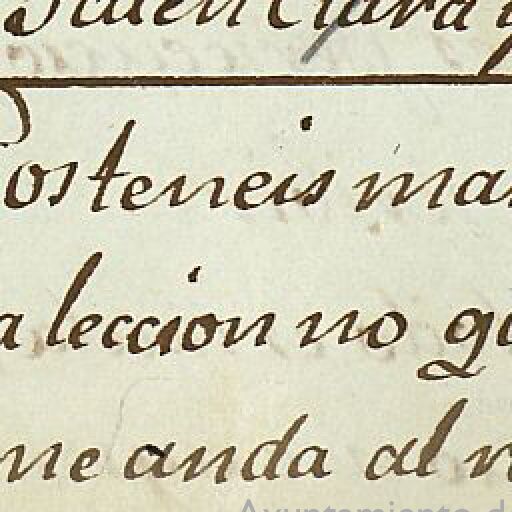 Clara
os teneis ma
a leccion no
me anda al
Ayuntamiento d